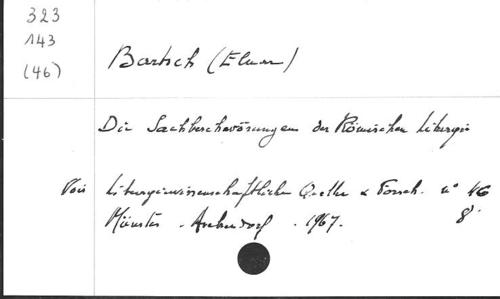 323
143
(46)
Bartsch (Elmar)
Die Sachbeschwörungen der Römischen Liturgie
Voir Liturgiewissenschaftliche Quellen & Forsch. n° 46
Münster. Aschendorf. 1967. 8°